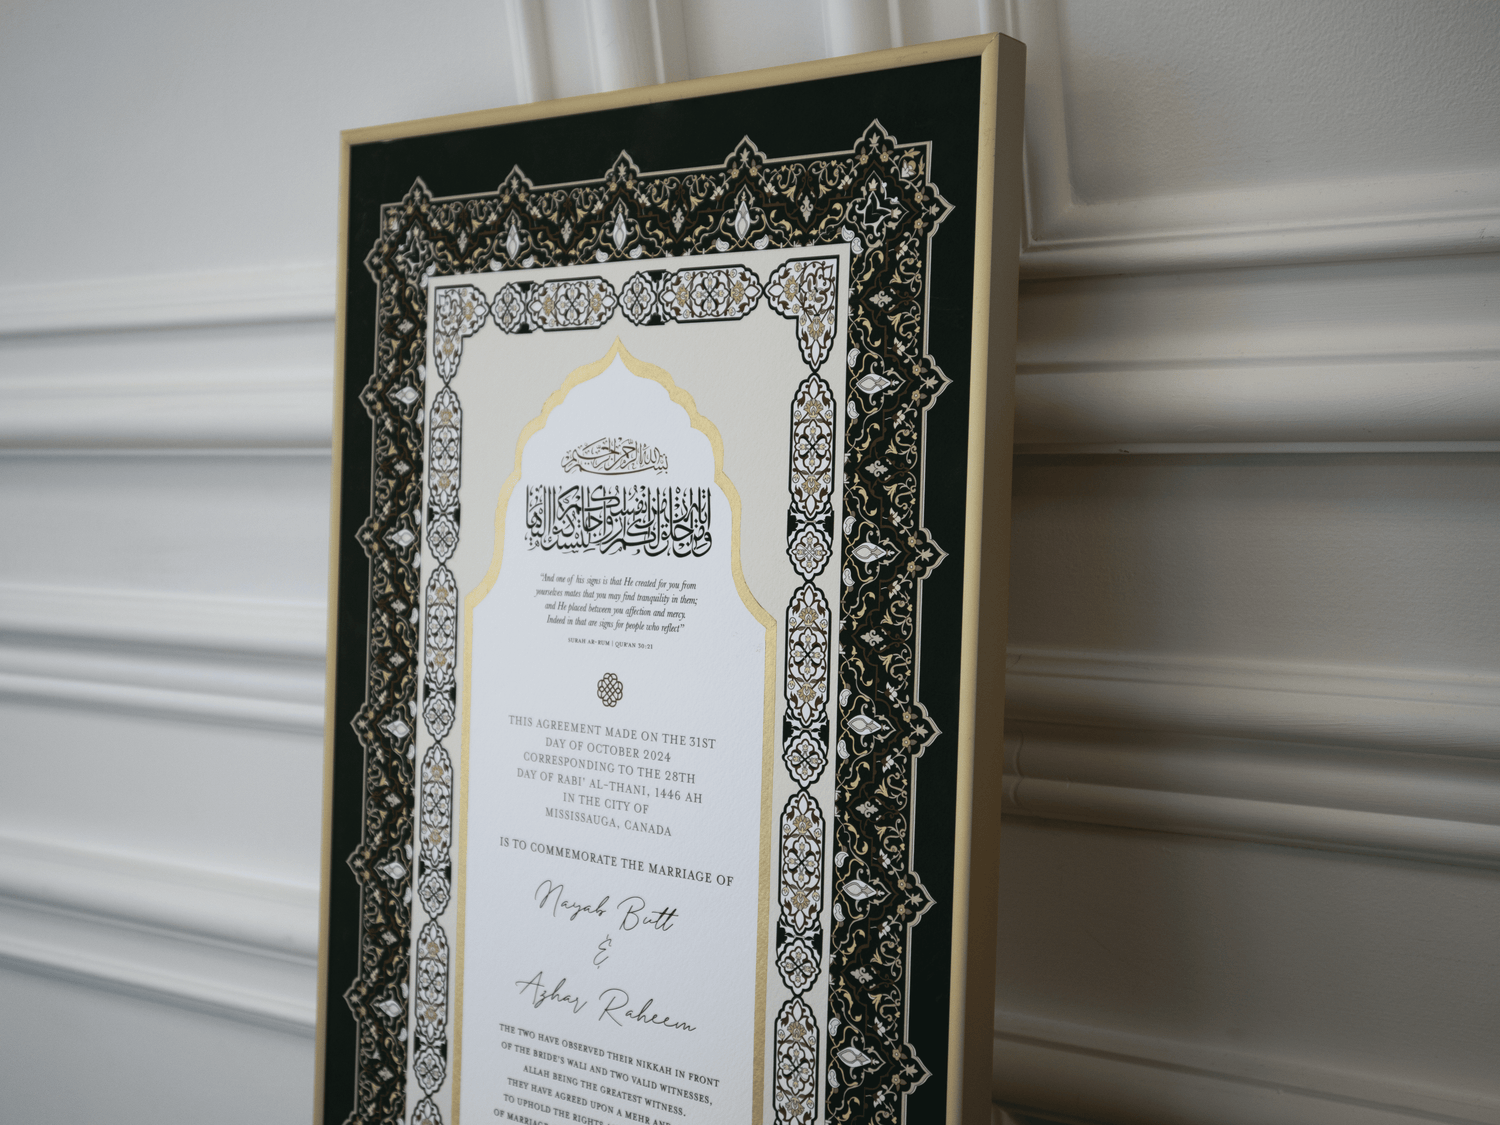 بسم الله الرحمن الرحيم
ومن آياته أن خلق لكم من أنفسكم أزواجا لتسكنوا إليها
"And one of his signs is that He created for you from
yourselves mates that you may find tranquility in them;
and He placed between you affection and mercy.
Indeed in that are signs for people who reflect"
SURAH AR-RUM | QUR'AN 30:21
THIS AGREEMENT MADE ON THE 31ST
DAY OF OCTOBER 2024
CORRESPONDING TO THE 28TH
DAY OF RABI' AL-THANI, 1446 AH
IN THE CITY OF
MISSISSAUGA, CANADA
IS TO COMMEMORATE THE MARRIAGE OF
Nayab Butt
&
Azhar Raheem
THE TWO HAVE OBSERVED THEIR NIKKAH IN FRONT
OF THE BRIDE'S WALI AND TWO VALID WITNESSES,
ALLAH BEING THE GREATEST WITNESS.
THEY HAVE AGREED UPON A MEHR AND
TO UPHOLD THE RIGHTS
OF MARRIAG